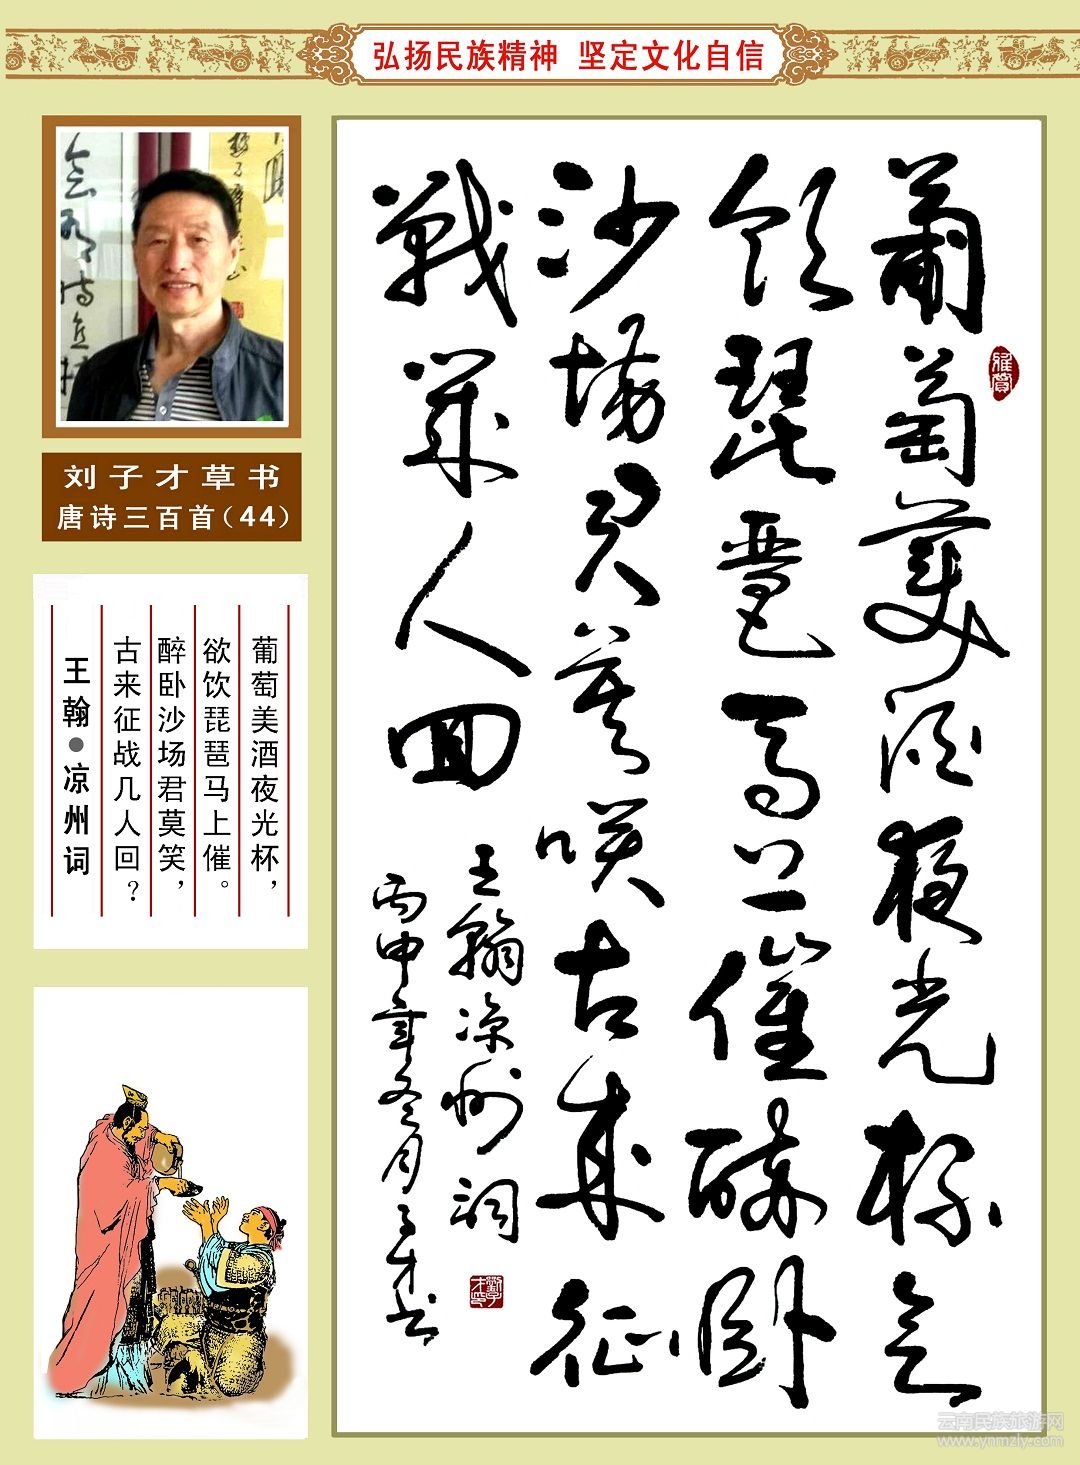 弘扬民族精神 坚定文化自信
刘子才草书
唐诗三百首(44)
葡萄美酒夜光杯，
欲饮琵琶马上催。
醉卧沙场君莫笑，
古来征战几人回？
王翰●凉州词
葡萄美酒夜光杯欲
飲琵琶馬上催醉卧
沙場君莫笑古來征
戰幾人回
王翰涼州詞
丙申年冬月子才书
雅賞
云南民族旅游网
www.ynmzly.com